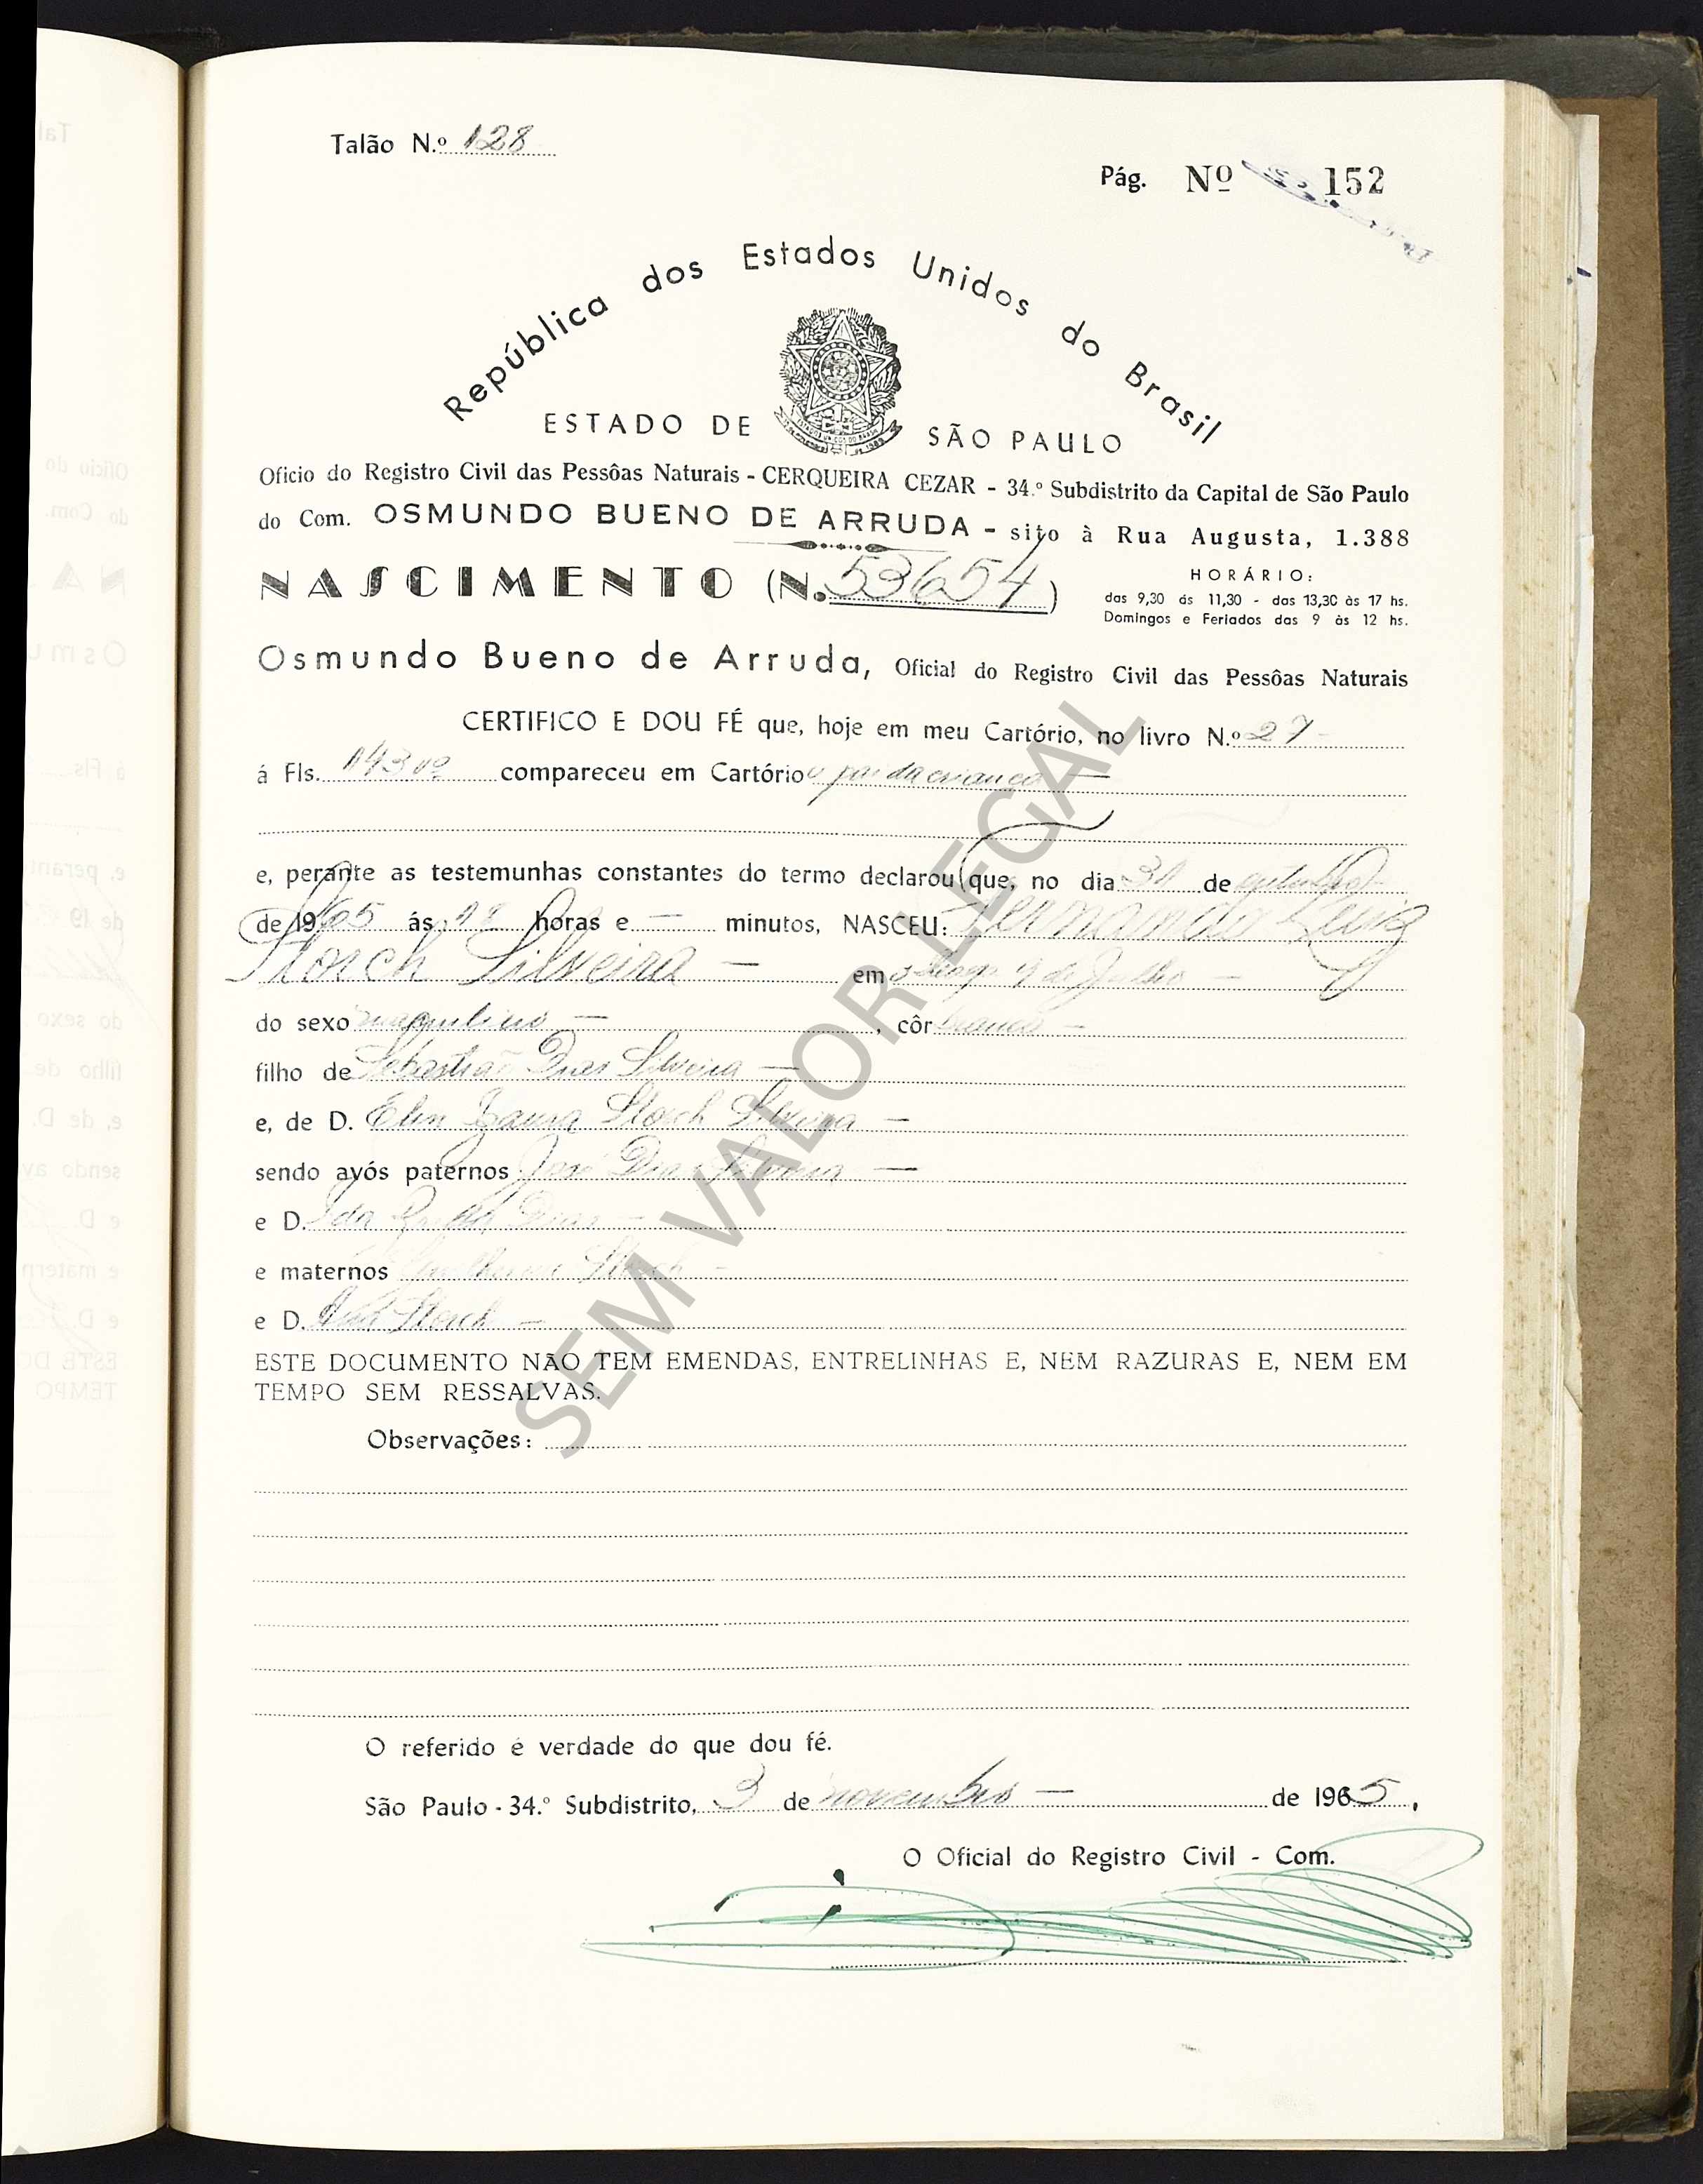 Talão N.º 128
Pág. Nº 152
República dos Estados Unidos do Brasil
ESTADO DE SÃO PAULO
Oficio do Registro Civil das Pessôas Naturais - CERQUEIRA CEZAR - 34.º Subdistrito da Capital de São Paulo
do Com. OSMUNDO BUENO DE ARRUDA - sito à Rua Augusta, 1.388
NASCIMENTO (N. 53654)
HORÁRIO:
das 9,30 ás 11,30 - das 13,30 às 17 hs.
Domingos e Feriados das 9 às 12 hs.
Osmundo Bueno de Arruda, Oficial do Registro Civil das Pessôas Naturais
CERTIFICO E DOU FÉ que, hoje em meu Cartório, no livro N.º 27
á Fls. 143 vº compareceu em Cartório o pai da criança —
e, perante as testemunhas constantes do termo declarou que, no dia 31 de outubro
de 1965 ás 18 horas e — minutos, NASCEU: Fernando Luiz
Storch Silveira — em 9 de Julho —
do sexo masculino —, côr branca —
filho de Sebastião Dias Silveira —
e, de D. Elen Storch Silveira —
sendo avós paternos José Dias Silveira —
e D. Ida Dias —
e maternos Guilherme Storch —
e D. Storch —
ESTE DOCUMENTO NÃO TEM EMENDAS, ENTRELINHAS E, NEM RAZURAS E, NEM EM
TEMPO SEM RESSALVAS.
Observações:
O referido é verdade do que dou fé.
São Paulo - 34.º Subdistrito, 3 de novembro — de 1965.
O Oficial do Registro Civil - Com.
SEM VALOR LEGAL